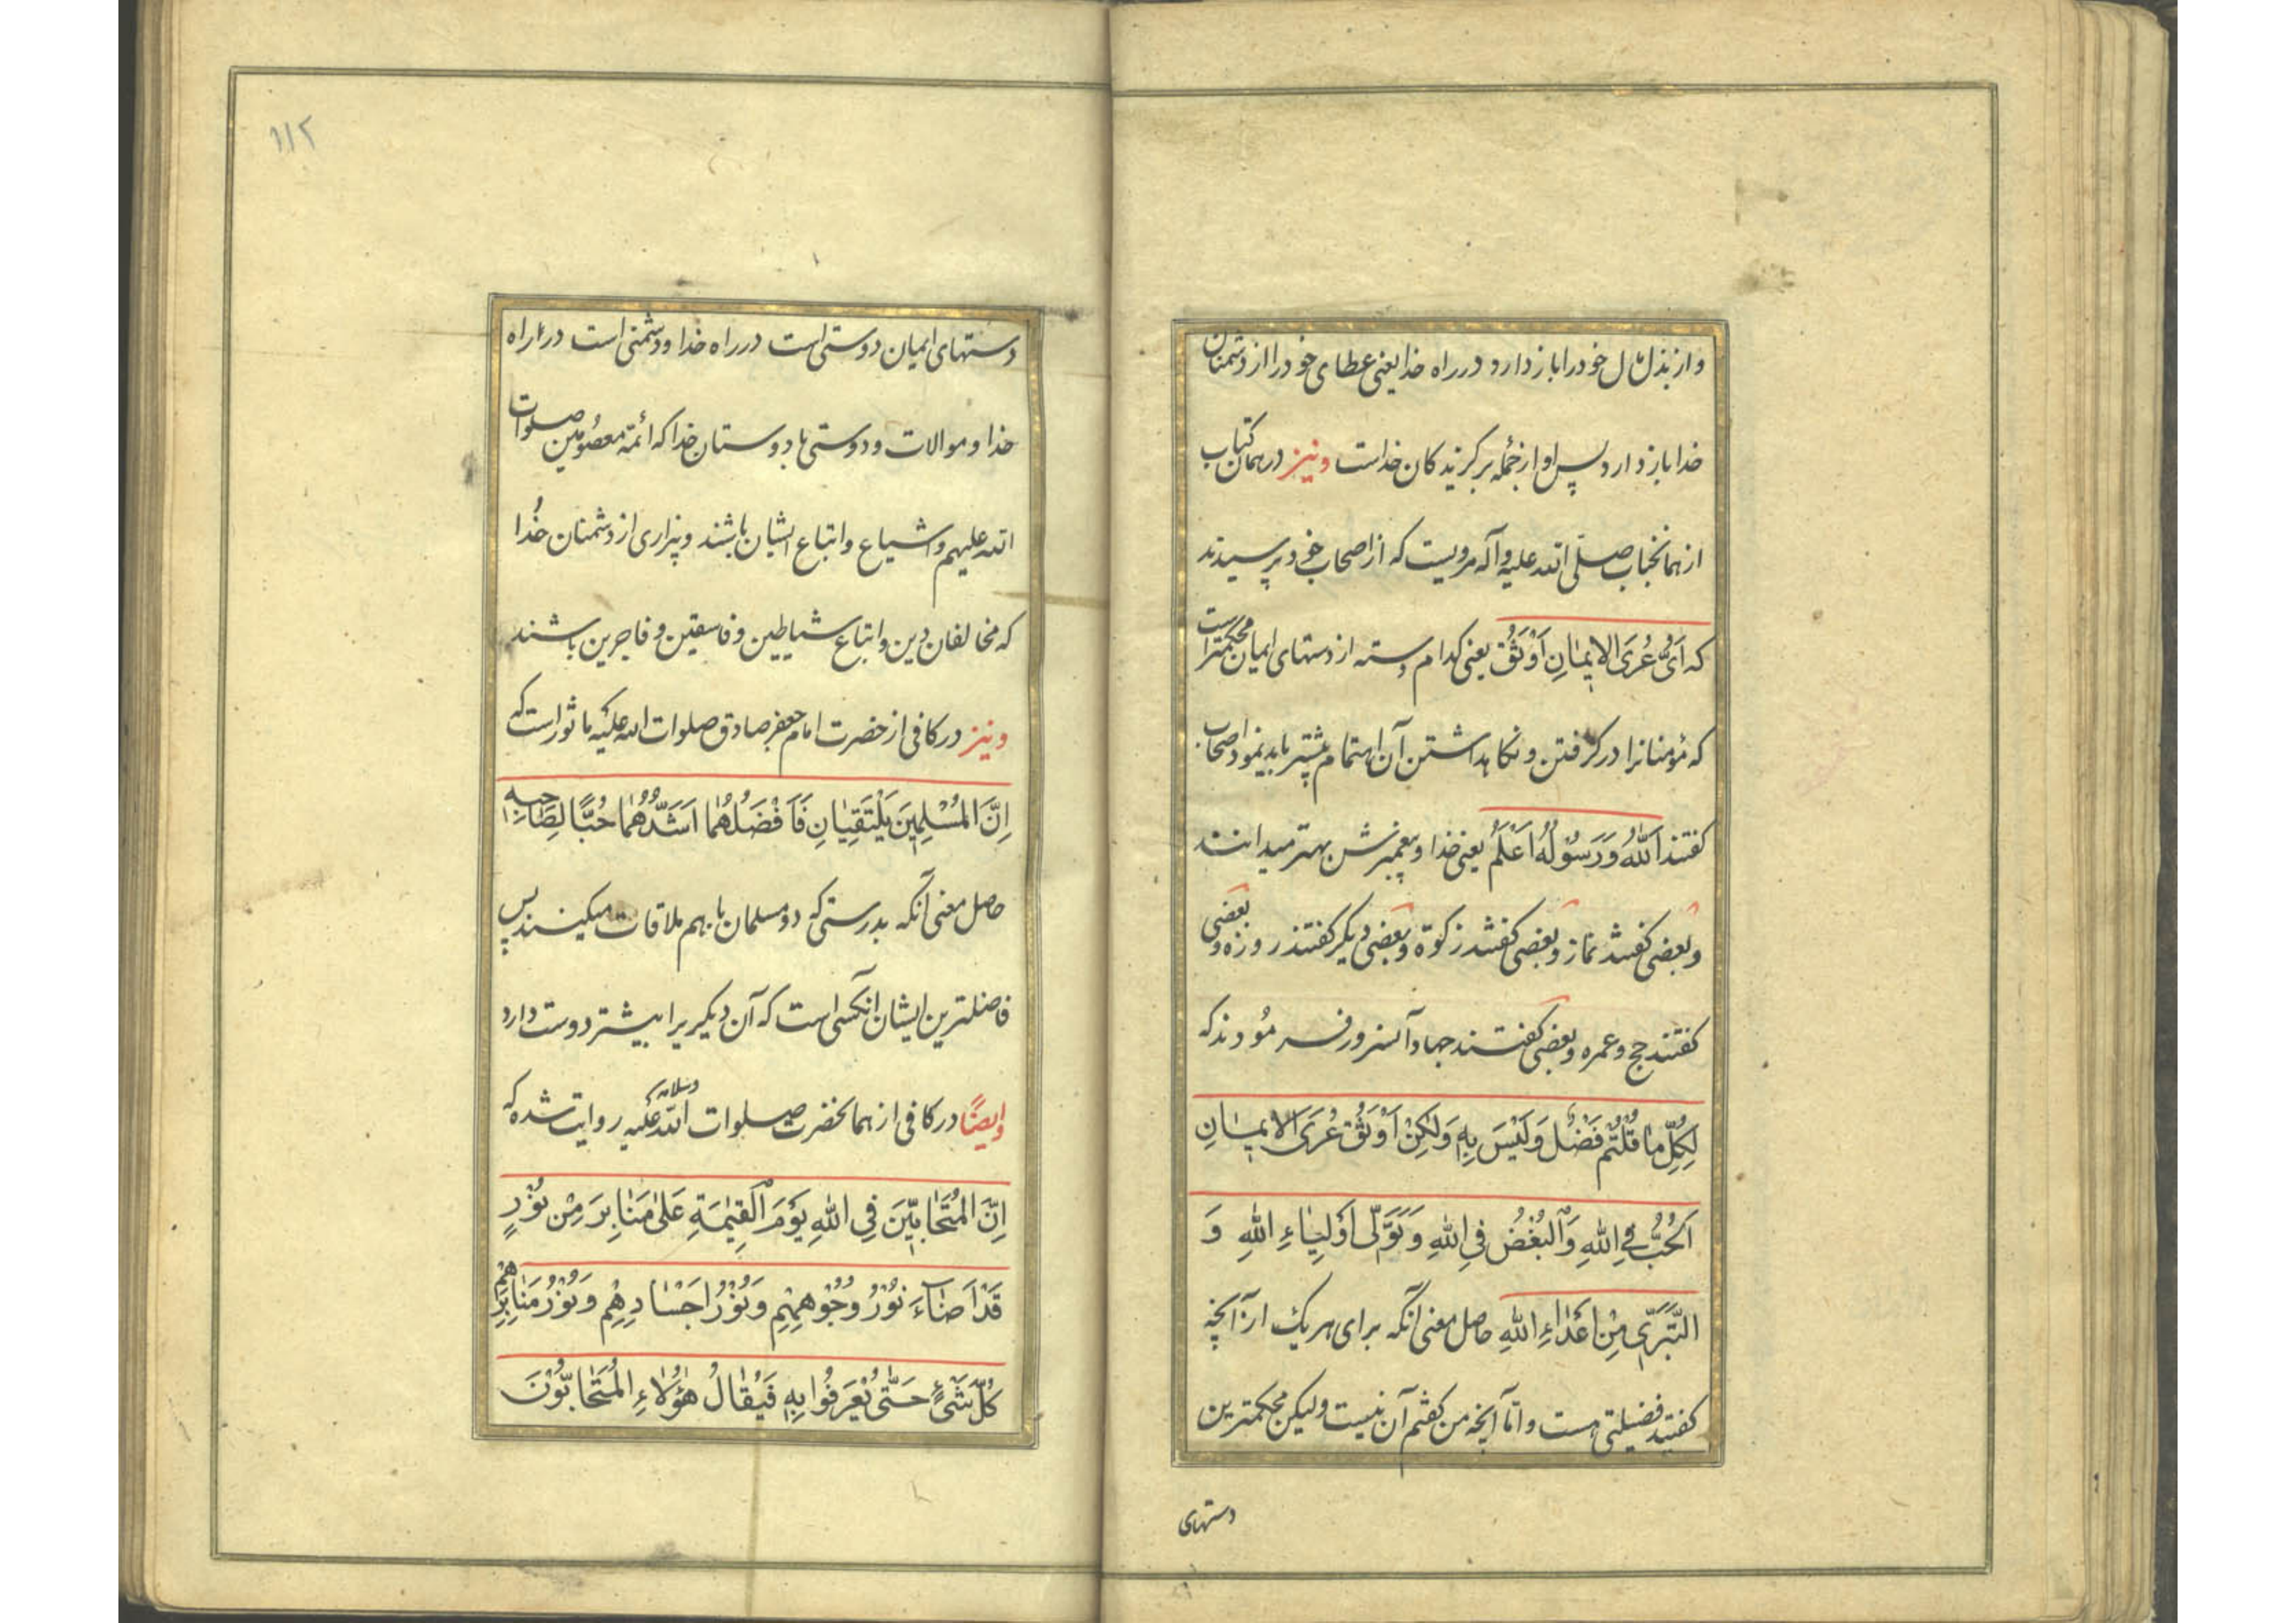 و از بذل مال خود را باز دارد در راه خدا یعنی عطای خود را از دشمنان
خدا باز دارد پس او از جمله برکزیدکان خداست و نیز در همان کتاب
از همانجناب صلّی الله علیه و آله مرویست که از اصحاب خود پرسیدند
که اَیُّ عُرَی الاِیمٰانِ اَوْثَقُ یعنی کدام دسته از دستهای ایمان محکمتر است
که مؤمنانرا در کرفتن و نکاهداشتن آن اهتمام بیشتر باید نمود اصحاب
کفتند اَللّٰهُ وَ رَسُولُهُ اَعْلَمُ یعنی خدا و پیغمبرش بهتر میدانند
و بعضی کفتند نماز و بعضی کفتند زکوة و بعضی دیکر کفتند روزه و بعضی
کفتند حج و عمره و بعضی کفتند جهاد آنسرور فرمودند که
لِکُلِّ مٰا قُلْتُمْ فَضْلٌ وَلَیْسَ بِهِ وَلٰکِنْ اَوْثَقُ عُرَی الاِیمٰانِ
اَلْحُبُّ فِی اللّٰهِ وَالْبُغْضُ فِی اللّٰهِ وَ تَوَلّٰی اَوْلِیٰاءِ اللّٰهِ وَ
التَّبَرّی مِنْ اَعْدٰاءِ اللّٰهِ حاصل معنی آنکه برای هر یک از آنچه
کفتید فضیلتی هست و امّا آنچه من کفتم آن نیست ولیکن محکمترین
دستهای
۱۱۲
دستهای ایمان دوستی است در راه خدا و دشمنی است در راه
خدا و موالات و دوستی با دوستان خدا که ائمّه معصومین صلوات
الله علیهم و اشیاع و اتباع ایشان باشند و بیزاری از دشمنان خدا
که مخالفان دین و اتباع شیاطین و فاسقین و فاجرین باشند
و نیز در کافی از حضرت امام جعفر صادق صلوات الله علیه ماثور است که
اِنَّ الْمُسْلِمَیْنِ یَلْتَقِیٰانِ فَاَفْضَلُهُمٰا اَشَدُّهُمٰا حُبًّا لِصٰاحِبِهِ
حاصل معنی آنکه بدرستی که دو مسلمان با بهم ملاقات میکنند پس
فاضلترین ایشان آنکسی است که آن دیکریرا بیشتر دوست دارد
و ایضًا در کافی از همانحضرت صلوات الله علیه و سلامه روایت شده که
اِنَّ الْمُتَحٰابّینَ فِی اللّٰهِ یَوْمَ الْقِیٰمَةِ عَلٰی مَنٰابِرَ مِنْ نُوْرٍ
قَدْ اَضٰاءَ نُوْرُ وُجُوْهِهِمْ وَ نُوْرُ اَجْسٰادِهِمْ وَ نُوْرُ مَنٰابِرِهِمْ
کُلَّ شَیْءٍ حَتّٰی یُعْرَفُوا بِهِ فَیُقٰالُ هٰؤُلٰاءِ الْمُتَحٰابُّوْنَ